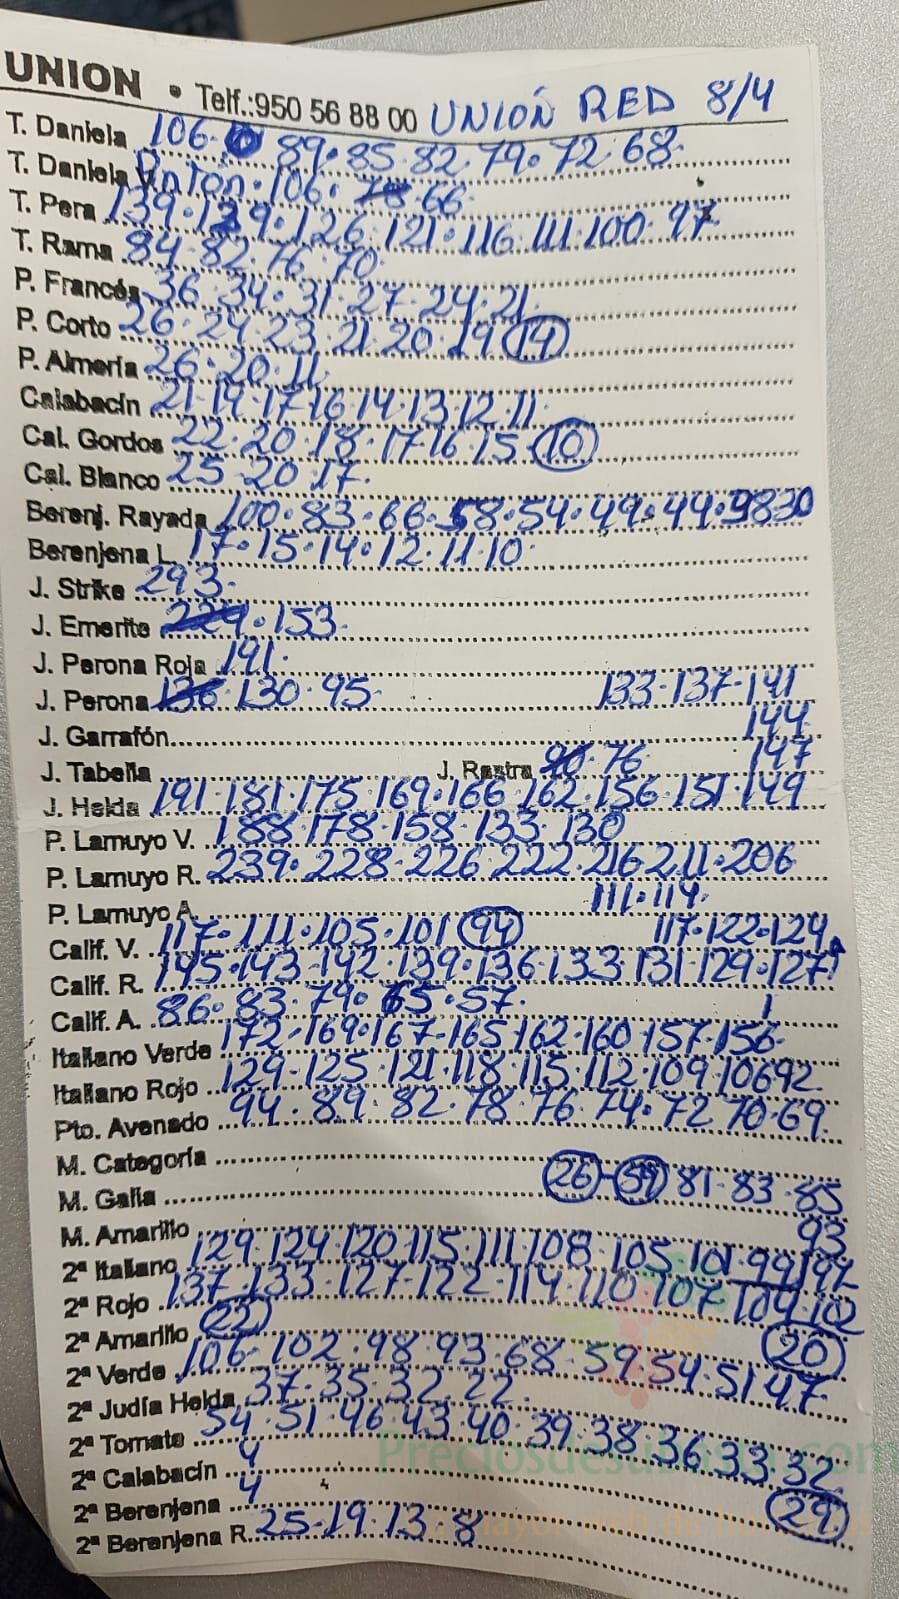 UNION • Telf.:950 56 88 00 UNIÓN RED 8/4
T. Daniela 106. 89.85.82.79.72.68.
T. Daniela Unión.106. 66.
T. Pera 139.129.126.121.116.111.100.97.
T. Rama 84.82.76.70
P. Francés 36.34.31.27.24.21.
P. Corto 26.24.23.21.20.19 (19)
P. Almería 26.20.11
Calabacín 21.19.17.16.14.13.12.11.
Cal. Gordos 22.20.18.17.16.15 (10)
Cal. Blanco 25.20.17.
Berenj. Rayada 100.83.66.58.54.49.44. 30
Berenjena L. 17.15.14.12.11.10.
J. Strike 293.
J. Emerite 229.153.
J. Perona Roja 191.
J. Perona 136.130.95. 133.137-141
J. Garrafón 144
J. Tabella J. Rastra 90.76 147
J. Helda 191.181.175.169.166.162.156.151.149
P. Lamuyo V. 188.178.158.133.130
P. Lamuyo R. 239.228.226.222.216.211.206
P. Lamuyo A. 111.114.
Calif. V. 117.111.105.101 (99) 117.122.124
Calif. R. 145.143.142.139.136.133.131.129.127
Calif. A. 86.83.79.65.57.
Italiano Verde 172.169.167.165.162.160.157.156.
Italiano Rojo 129.125.121.118.115.112.109.106 92.
Pto. Avenado 94.89.82.78.76.74.72.70.69.
M. Categoría
M. Galia (26)-(59) 81.83.85
M. Amarillo 93
2ª Italiano 129.124.120.115.111.108.105.101.99
2ª Rojo 137.133.127.122.114.110.107.104.102
2ª Amarillo (22) (20)
2ª Verde 106.102.98.93.68.59.54.51.47
2ª Judía Helda 37.35.32.22.
2ª Tomate 54.51.46.43.40.39.38.36.33.32.
2ª Calabacín 4
2ª Berenjena 4 (29)
2ª Berenjena R. 25.19.13.8